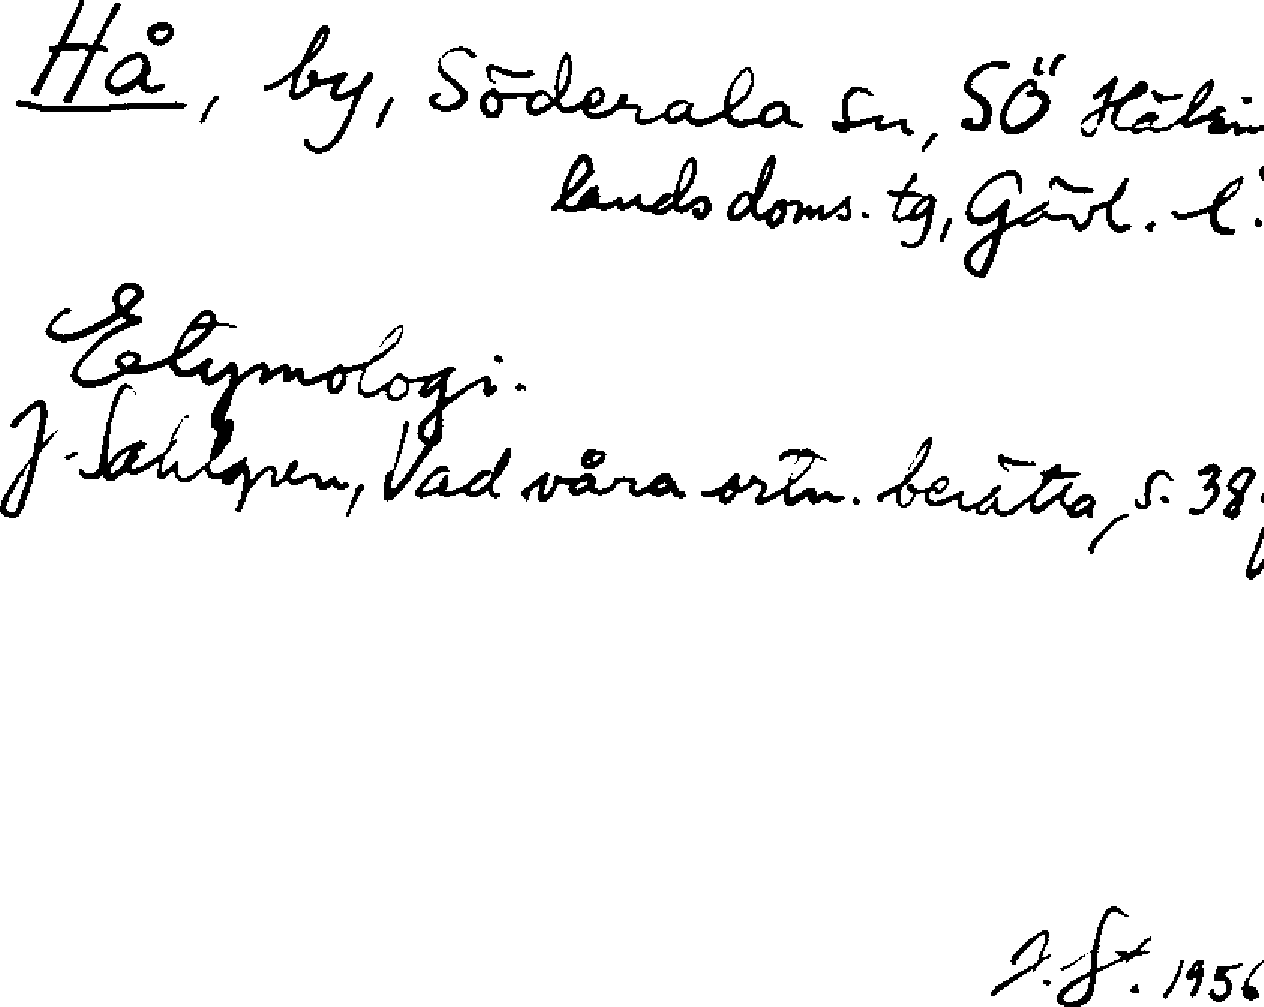 Hå, by, Söderala sn, SÖ Hälsin
lands doms. tg, Gävl. l.
Etymologi.
J. Sahlgren, Vad våra ortn. berätta, s. 38.
J. St. 1956